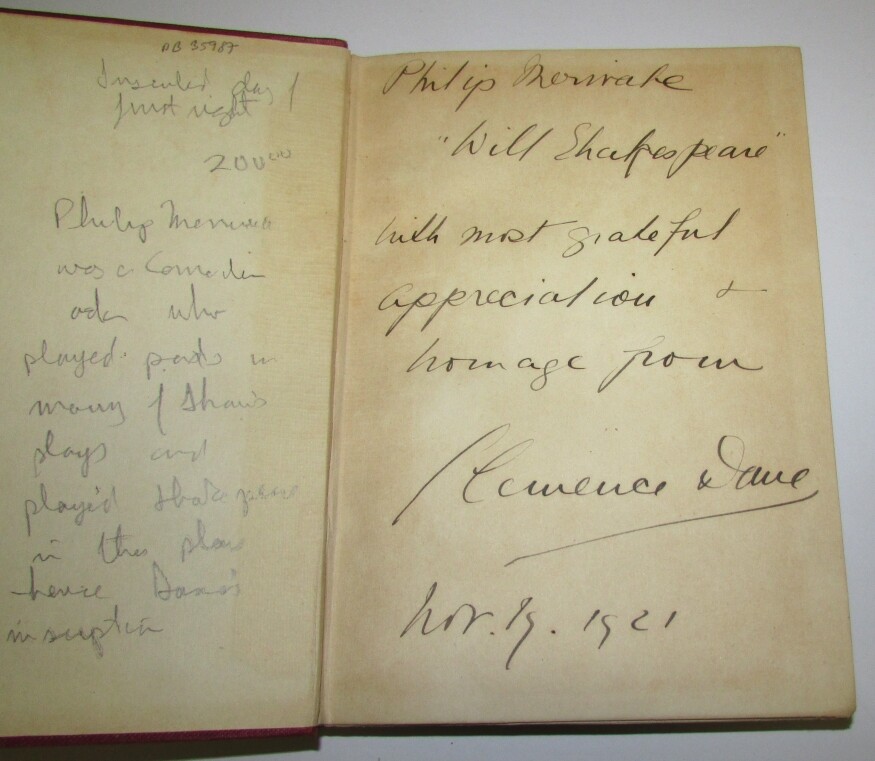 DB 35987
Inscribed day of
first night
200
Philip Merivale
was a Comedian
actor who
played parts in
many of Shaw's
plays and
played Shakespeare
in this play
hence Dane's
inscription
Philip Merivale
"Will Shakespeare"
with most grateful
appreciation &
homage from
Clemence Dane
Nov. 19. 1921